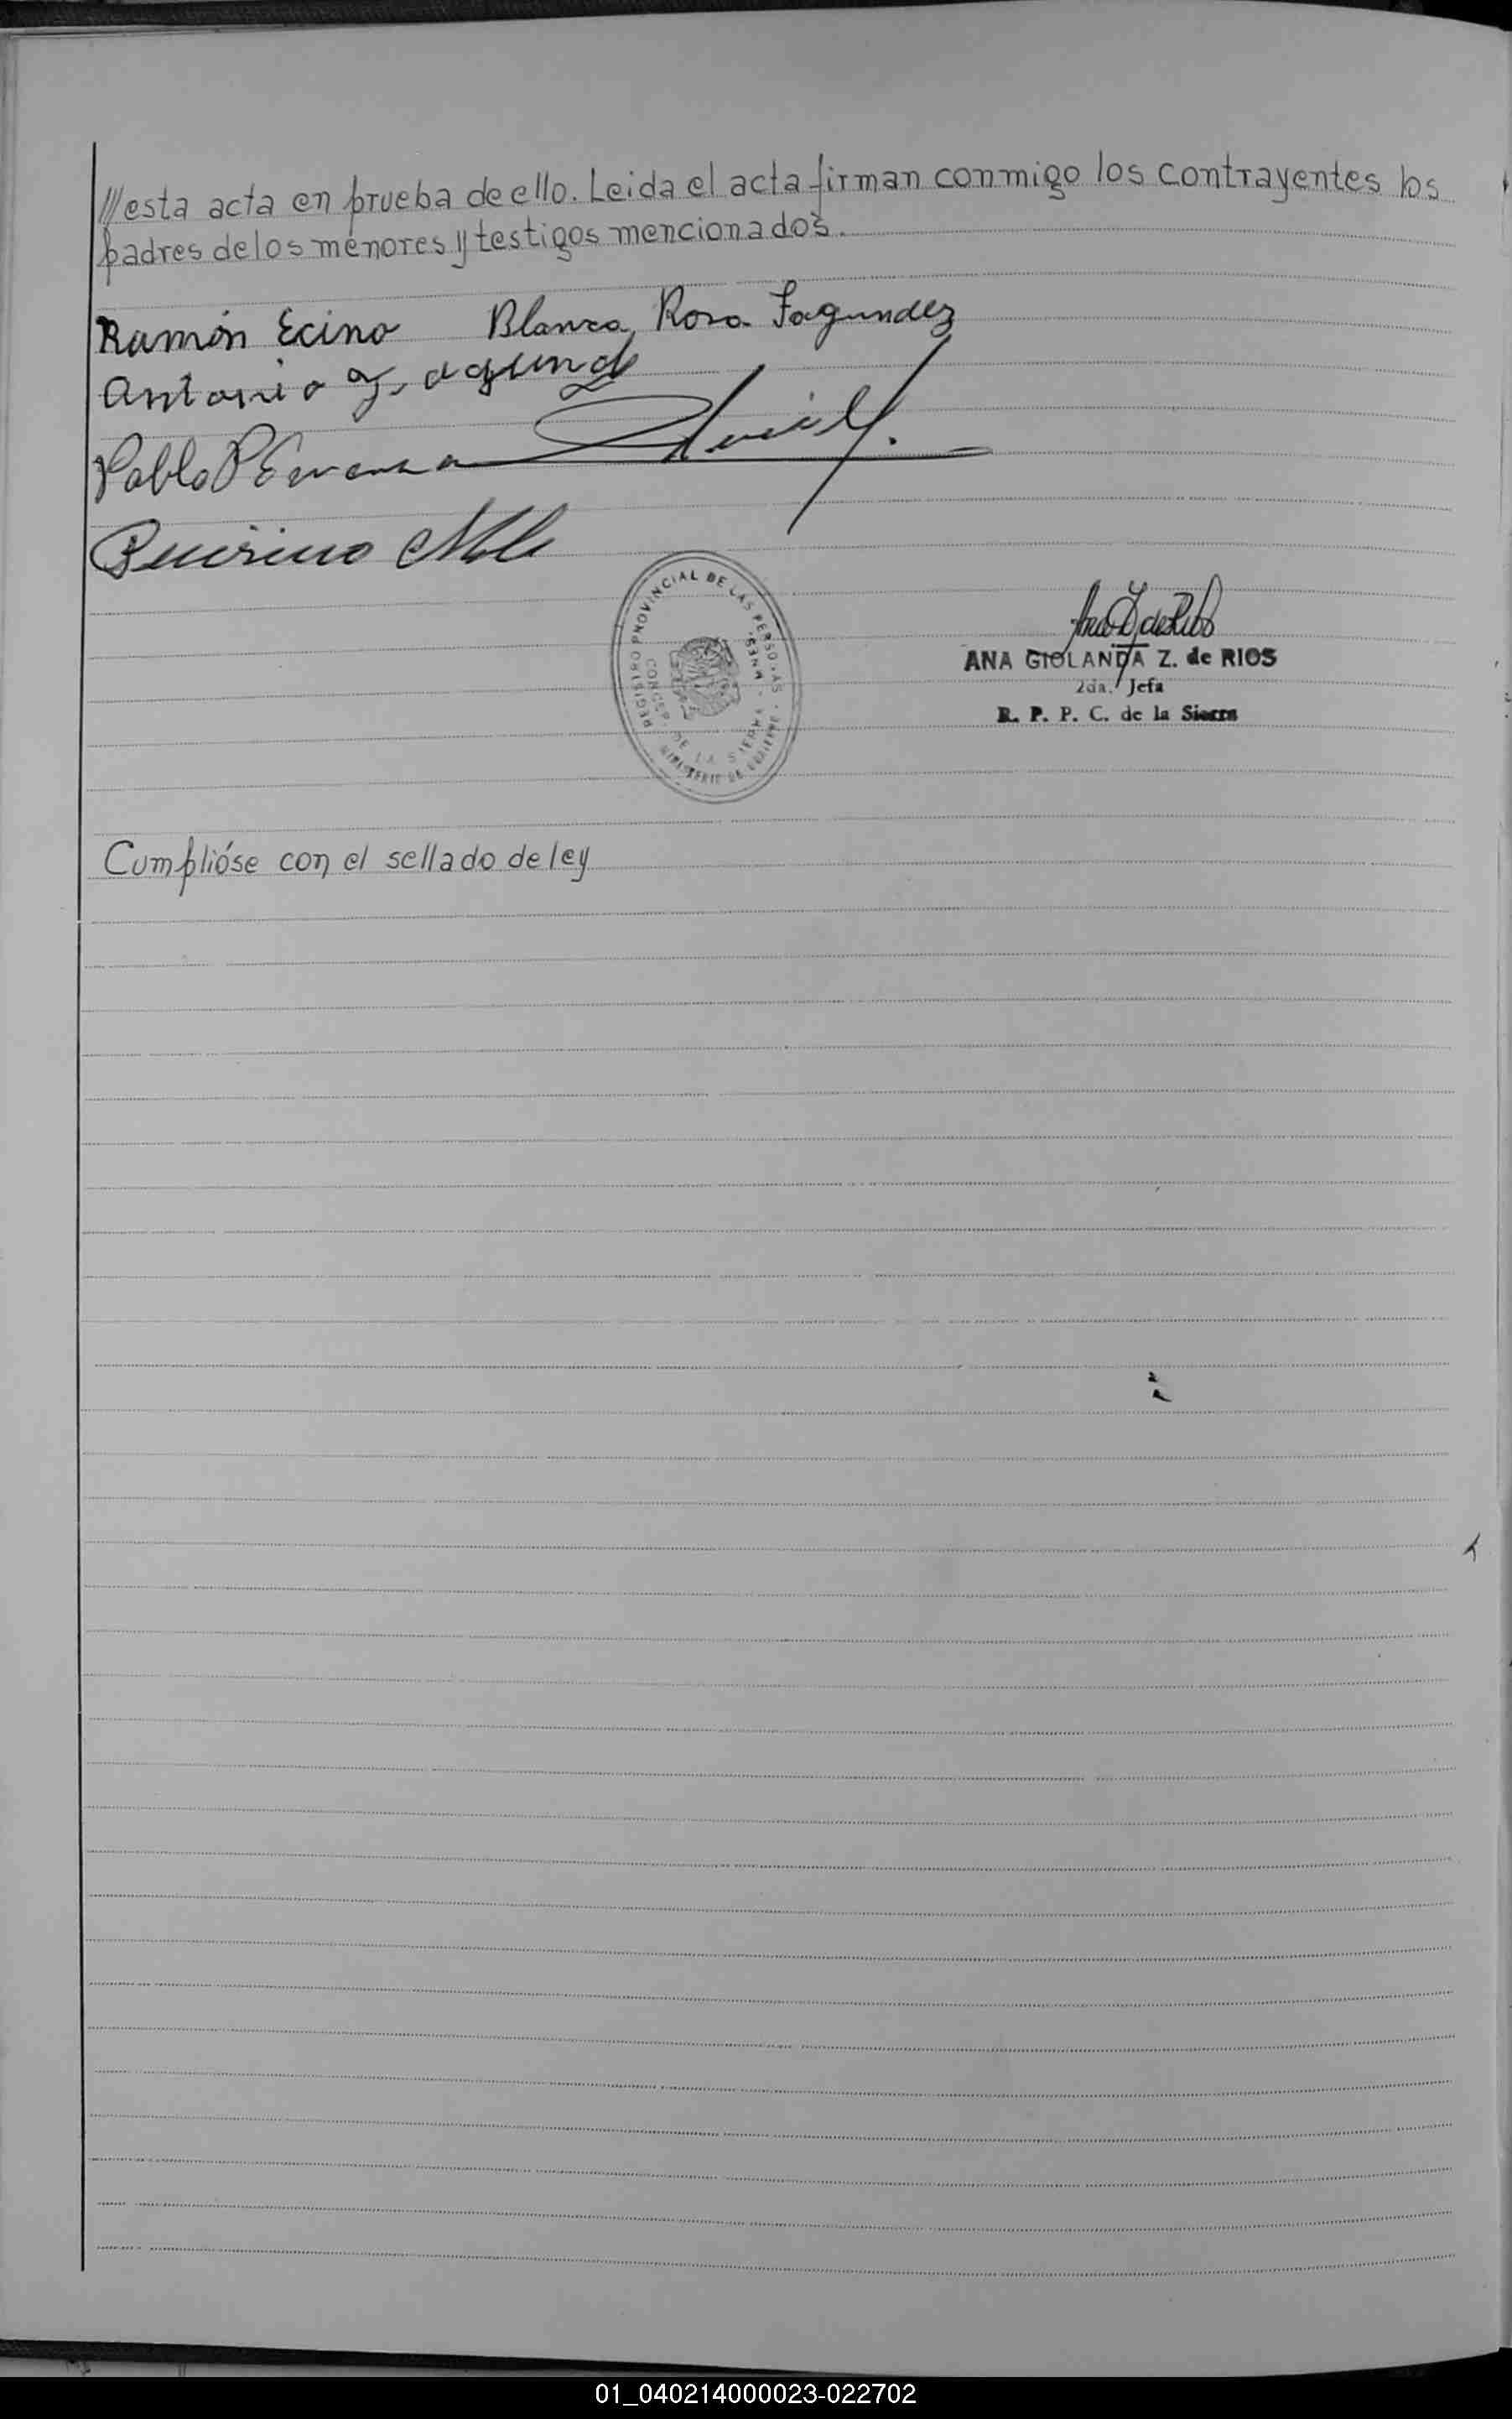 ///esta acta en prueba de ello. Leida el acta firman conmigo los contrayentes los
padres de los menores y testigos mencionados.
Ramón Ecino Blanca Rosa Fagundez
Antonio
Pablo
Quirino
REGISTRO PROVINCIAL DE LAS PERSONAS
CONCEP. DE LA SIERRA
ANA GIOLANDA Z. de RIOS
2da. Jefa
R. P. P. C. de la Sierra
Cumplióse con el sellado de ley
01_040214000023-022702